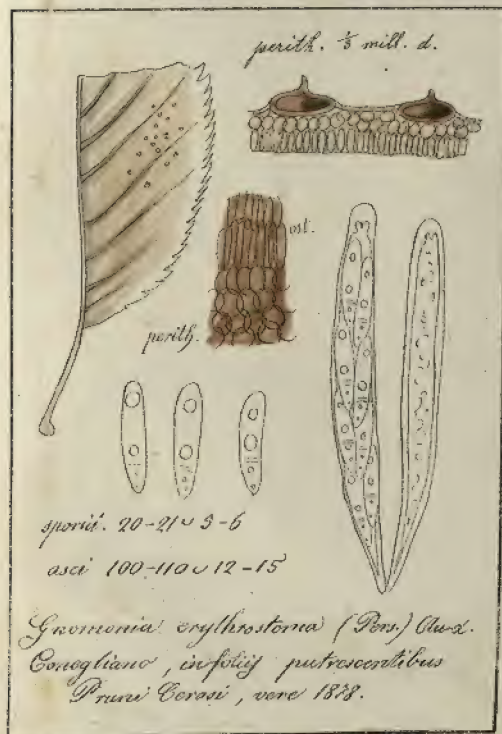 perith. ⅓ mill. d.
ost.
perith.
sporid. 20-21 ᴗ 5-6
asci 100-110 ᴗ 12-15
Gnomonia erythrostoma (Pers.) Awd.
Conegliano, in foliis putrescentibus
Pruni Cerasi, vere 1878.